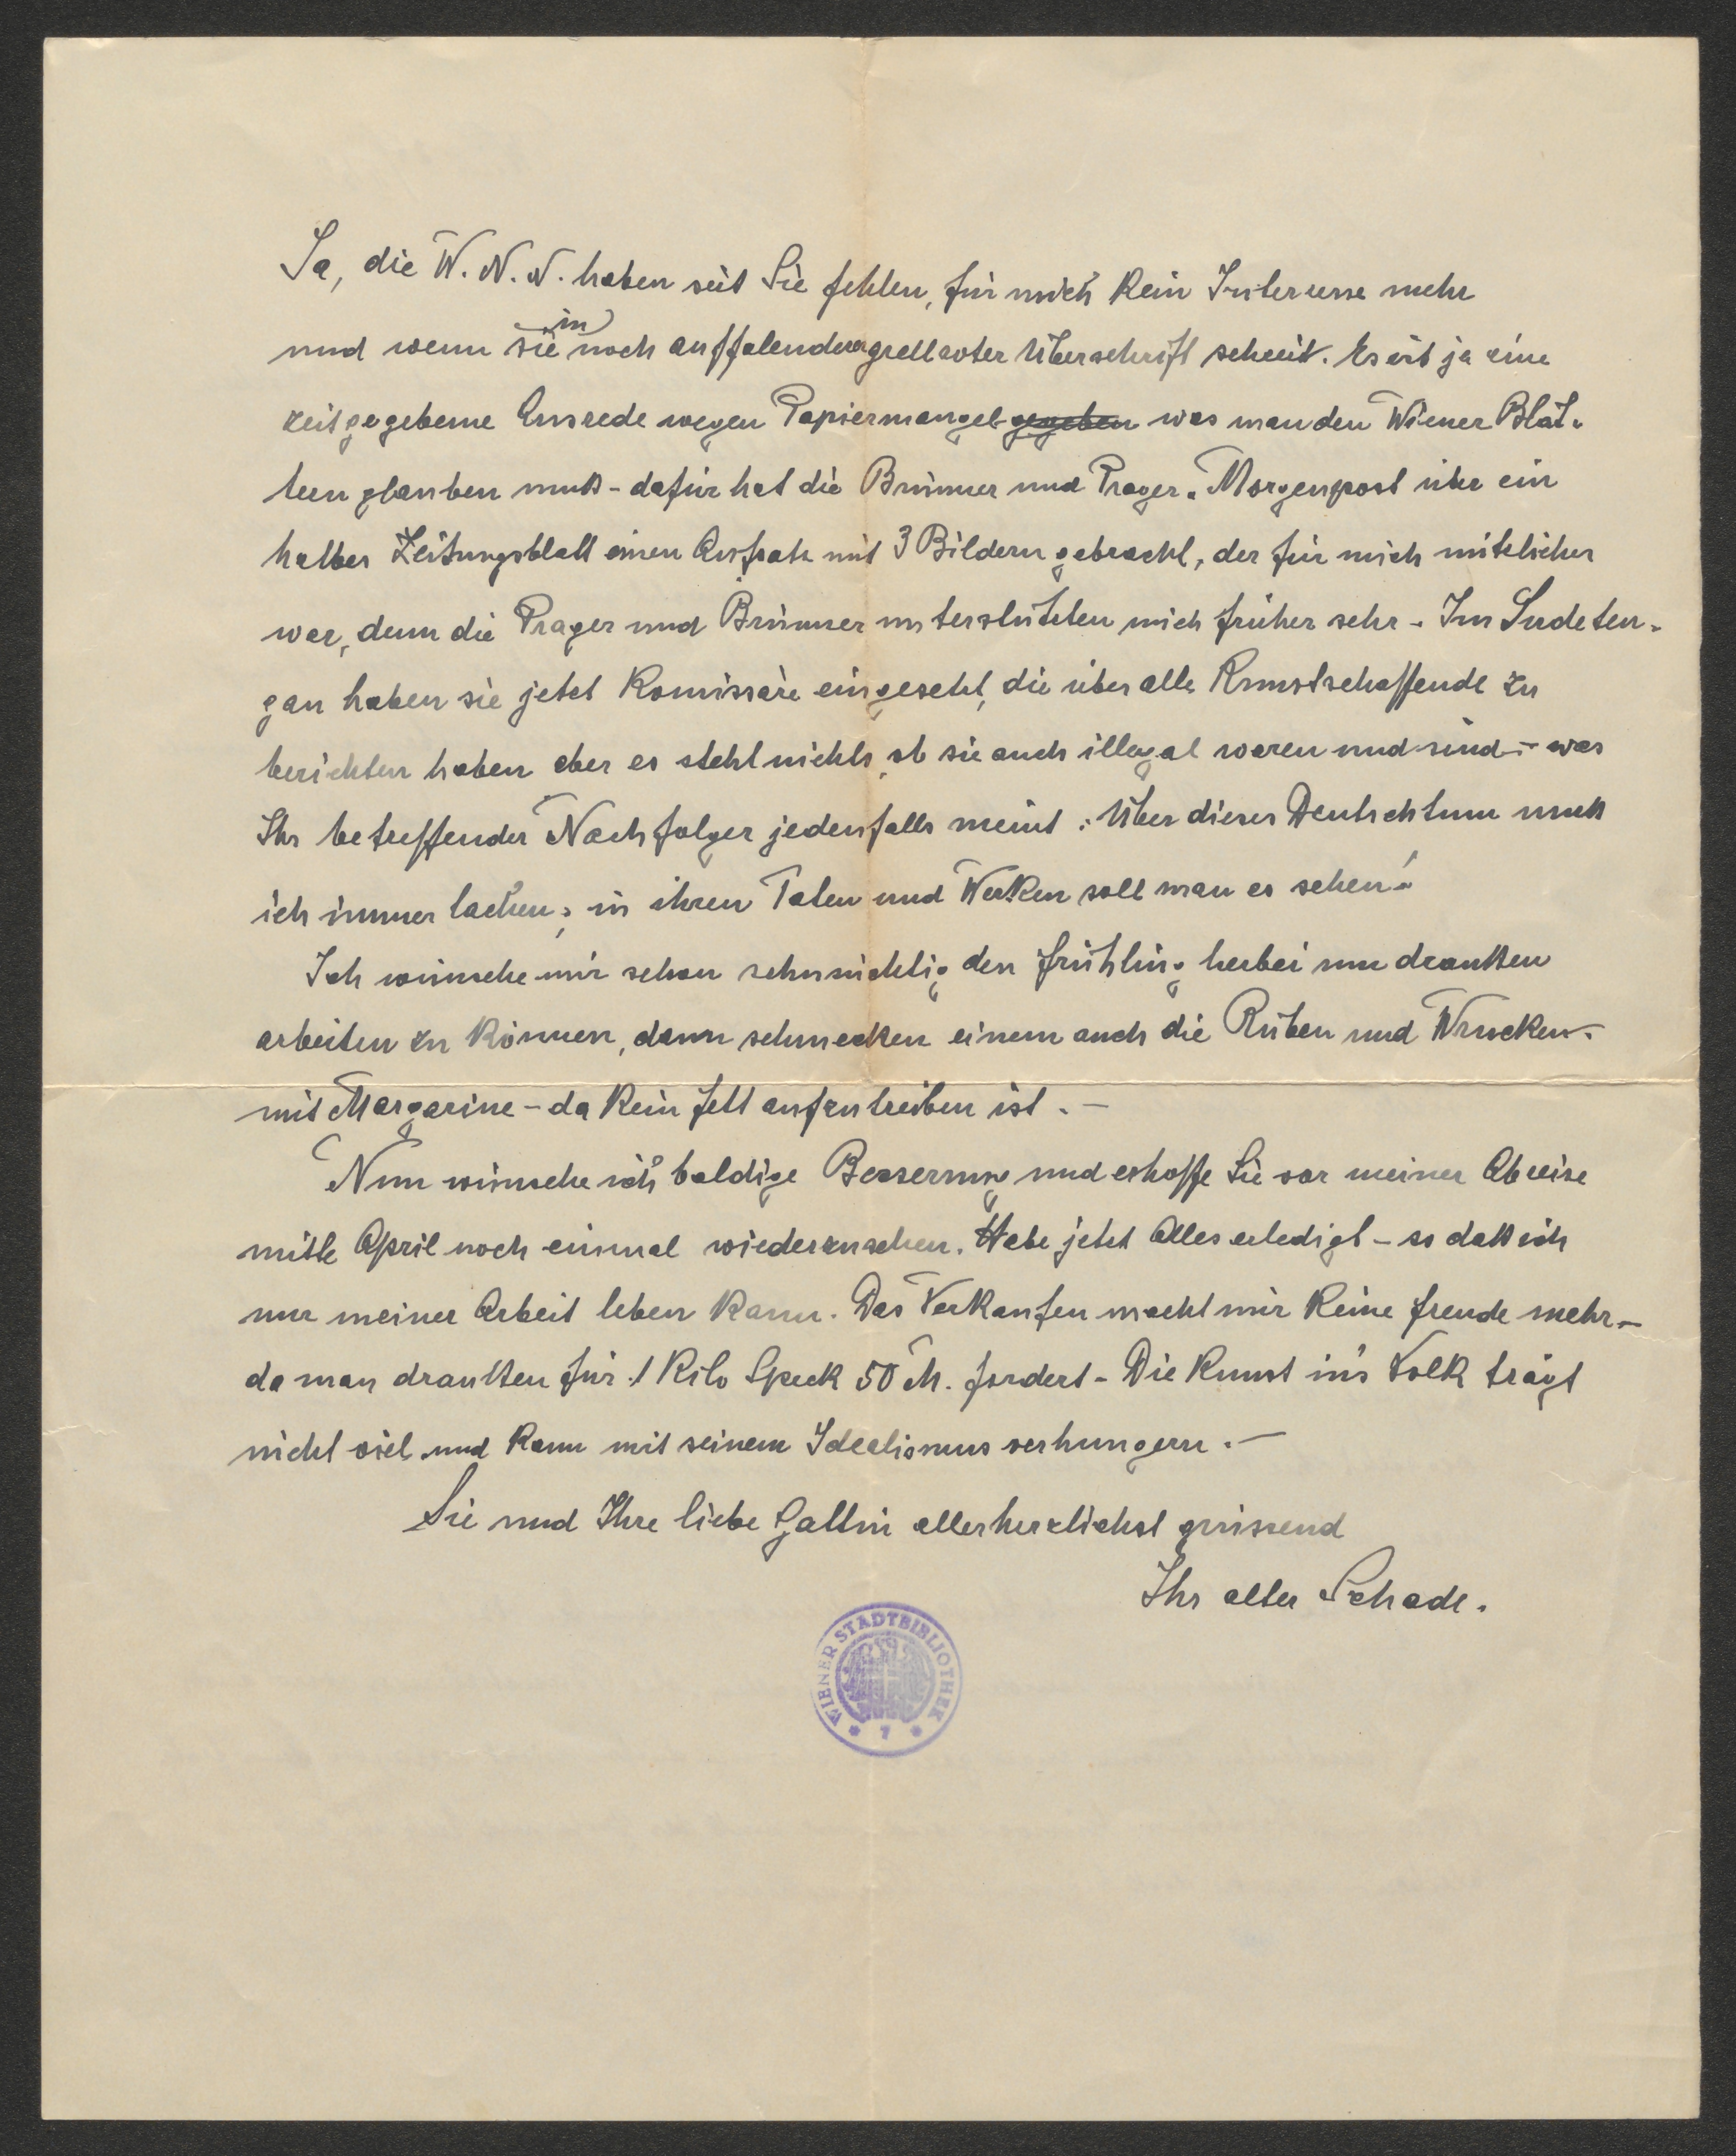 Ja, die W. N. N. haben seit Sie fehlen, für mich kein Interesse mehr
und wenn sie in noch auffalenderer grellroter Überschrift scheint. Es ist ja eine
zeitgegebene Ausrede wegen Papiermangel gegeben was man den Wiener Blät-
tern glauben muß - dafür hat die Brünner und Prager-Morgenpost über ein
halbes Zeitungsblatt einen Aufsatz mit 3 Bildern gebracht, der für mich nützlicher
war, denn die Prager und Brünner unterstützten mich früher sehr - Im Sudeten-
gau haben sie jetzt Komissäre eingesetzt, die über alle Kunstschaffende zu
berichten haben aber es steht nichts, ob sie auch illegal waren und sind - was
Ihr betreffender Nachfolger jedenfalls meint. Über dieses Deutschtum muß
ich immer lachen, in ihren Taten und Werken soll man es sehen!
Ich wünsche mir schon sehnsüchtig den Frühling herbei um draußen
arbeiten zu können, dann schmecken einem auch die Rüben und Wrucken -
mit Margarine - da kein Fett aufzutreiben ist. -
Nun wünsche ich baldige Besserung und erhoffe Sie vor meiner Abreise
mitte April noch einmal wiederzusehen. Habe jetzt Alles erledigt - so daß ich
nur meiner Arbeit leben kann. Das Verkaufen macht mir keine Freude mehr -
da man draußen für 1 Kilo Speck 50 M. fordert - Die Kunst in's Volk trägt
nicht viel und kann mit seinem Idealismus verhungern. -
Sie und Ihre liebe Gattin allerherzlichst grüssend
Ihr alter Schadl.
WIENER STADTBIBLIOTHEK
* 7 *